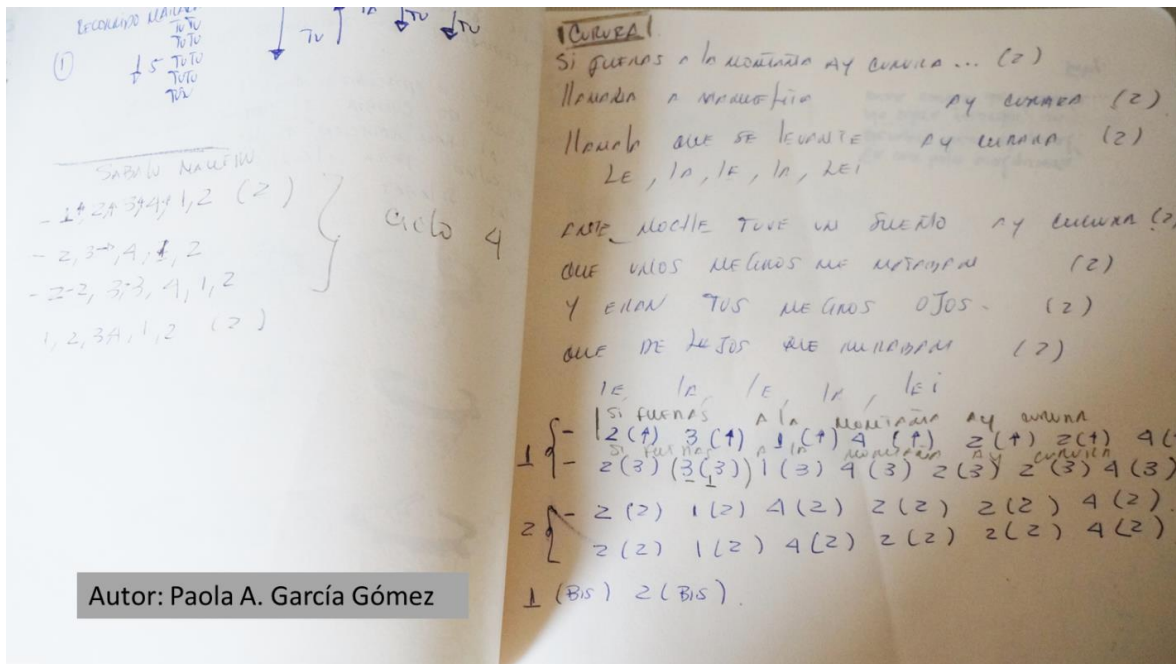 RECORRIDO
TU TU
TUTU
① ↓ 5 TUTU
TUTU
TUTU
TU TU TU
SABALO
- 1↑, 2↑, 3↑, 4↑, 1, 2 (2)
- 2, 3→, 4, 1, 2
- 2-2, 3-3, 4, 1, 2
1, 2, 34, 1, 2 (2)
Ciclo 4
CURURA
Si FUERAS A la MONTAÑA AY CURURA... (2)
llAMALA A AY CURURA (2)
llAMALA QUE SE lEVANTE AY CURURA (2)
LE, lA, lE, lA, LEi
ANTE NOCHE TUVE UN SUEÑO AY CURURA (2
QUE UNOS NEGROS ME MATABAN (2)
Y ERAN TUS NEGROS OJOS. (2)
QUE DE LEJOS ME MIRABAN (2)
lE, lA, lE, lA, lEi
Si FUERAS A la MONTAÑA AY CURURA
1 { - 2(↑) 3(↑) 1(↑) 4(↑) 2(↑) 2(↑) 4(
Si FUERAS A LA MONTAÑA AY CURURA
- 2(3) (3(3)) 1(3) 4(3) 2(3) 2(3) 4(3)
2 { - 2(2) 1(2) 4(2) 2(2) 2(2) 4(2)
2(2) 1(2) 4(2) 2(2) 2(2) 4(2)
1 (BIS) 2 (BIS).
Autor: Paola A. García Gómez